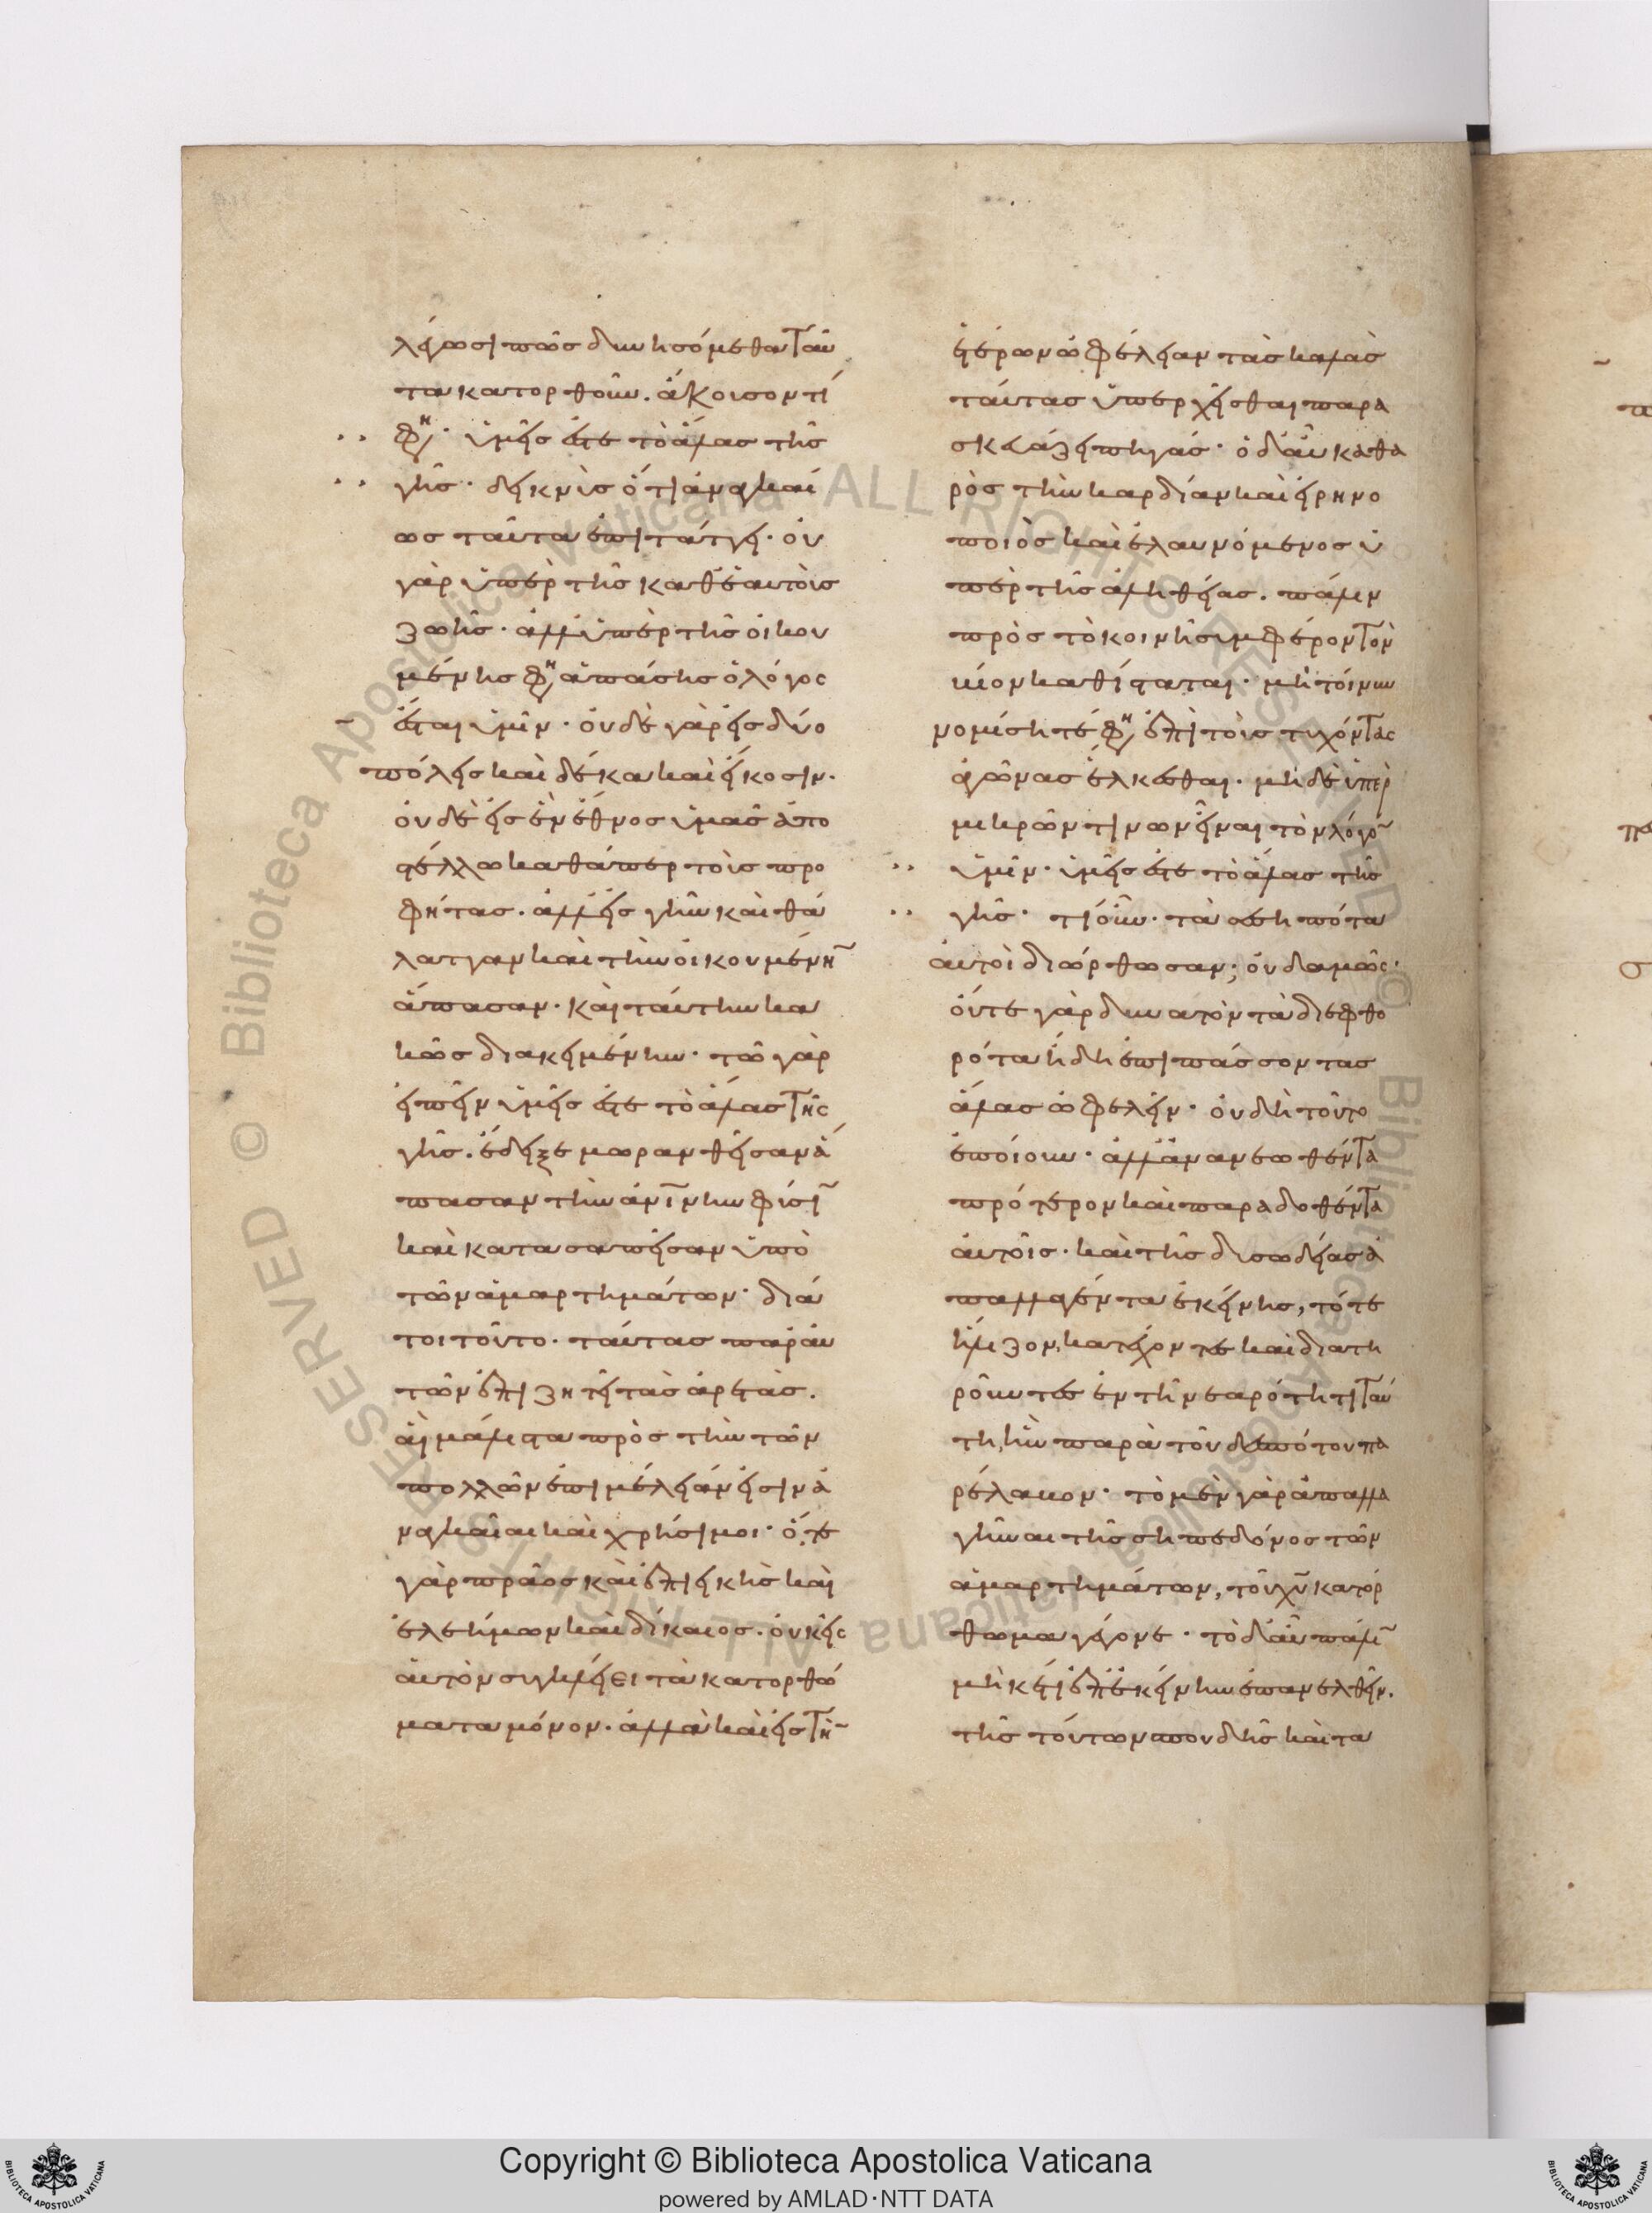 λέγωσι πῶς δυνησόμεθα ταῦ
τα κατορθοῦν. ἄκουσον τί
φη· ὑμεῖς ἐστε τὸ ἅλας τῆς
γῆς· δεικνὺς ὅτι ἀναγκαί
ως ταῦτα ἐπιτάττει· οὐ
γὰρ ὑπὲρ τῆς καθ' ἑαυτοὺς
ζωῆς· ἀλλ' ὑπὲρ τῆς οἰκου
μένης φη ἁπάσης ὁ λόγος
ἔσται ὑμῖν· οὐδὲ γὰρ εἰς δύο
πόλεις καὶ δέκα καὶ εἴκοσιν·
οὐδὲ εἰς ἓν ἔθνος ὑμᾶς ἀπο
στέλλω καθάπερ τοὺς προ
φήτας. ἀλλ' εἰς γῆν καὶ θά
λατταν καὶ τὴν οἰκουμένη̄
ἅπασαν· καὶ ταύτην κα
κῶς διακειμένην· τῶ γὰρ
εἰπεῖν ὑμεῖς ἐστε τὸ ἅλας τῆς
γῆς. ἔδειξε μωρανθεῖσαν ἅ
πασαν τὴν ἀνίνην φύσῑ
καὶ κατασαπεῖσαν ὑπὸ
τῶν ἁμαρτημάτων· διά
τοι τοῦτο· ταύτας παρ' αὐ
τῶν ἐπιζητεῖ τὰς ἀρετὰς.
αἳ μάλιστα πρὸς τὴν τῶν
πολλῶν ἐπιμέλειάν εἰσιν ἀ
ναγκαῖαι καὶ χρήσιμοι· ὅ,τε
γὰρ πρᾶος καὶ ἐπιεικὴς καὶ
ἐλεήμων καὶ δίκαιος· οὐκ εἰς
αὐτὸν συγκλείει τὰ κατορθώ
ματα μόνον· ἀλλὰ καὶ εἰς τὴ̄
ἑτέρων ὠφέλειαν τὰς καλὰς
ταύτας ὑπερχεῖσθαι παρα
σκευάζει πηγάς· ὁ δ' αὖ καθα
ρὸς τὴν καρδίαν καὶ εἰρηνο
ποιὸς καὶ ἐλαυνόμενος ὑ
πὲρ τῆς ἀληθείας. πάλιν
πρὸς τὸ κοινῆ συμφέρον τὸν
βίον καθίσταται· μὴ τοίνυν
νομίσητέ φη ἐπὶ τοὺς τυχόντας
ἀγῶνας ἕλκεσθαι· μὴ δὲ ὑπὲρ
μικρῶν τινων εἶναι τὸν λόγο̄
ὑμῖν· ὑμεῖς ἐστε τὸ ἅλας τῆς
γῆς· τί οὖν· τὰ σεσηπότα
αὐτοὶ διώρθωσαν; οὐδαμῶς·
οὔτε γὰρ δυνατὸν τὰ διεφθο
ρότα ἤδη ἐπιπάσσοντας
ἅλας ὠφελεῖν· οὐ δὴ τοῦτο
ἐποίουν· ἀλλ' ἀνανεωθέντα
πρότερον καὶ παραδοθέντα
αὐτοῖς· καὶ τῆς δυσωδείας ἀ
παλλαγέντα ἐκείνης, τότε
ἥλιζον, κατέχοντες καὶ διατη
ροῦντες ἐν τῆ νεαρότητι ταύ
τη, ἣν παρὰ τοῦ δεσπότου πα
ρέλαβον· τὸ μὲν γὰρ ἀπαλλα
γῆναι τῆς σηπεδόνος τῶν
ἁμαρτημάτων, τοῦ χῦ κατόρ
θωμα γέγονε· τὸ δ' αὖ πάλῑ
μὴ κέτι ἐπ' ἐκείνην ἐπανελθεῖν.
τῆς τούτων σπουδῆς καὶ τα